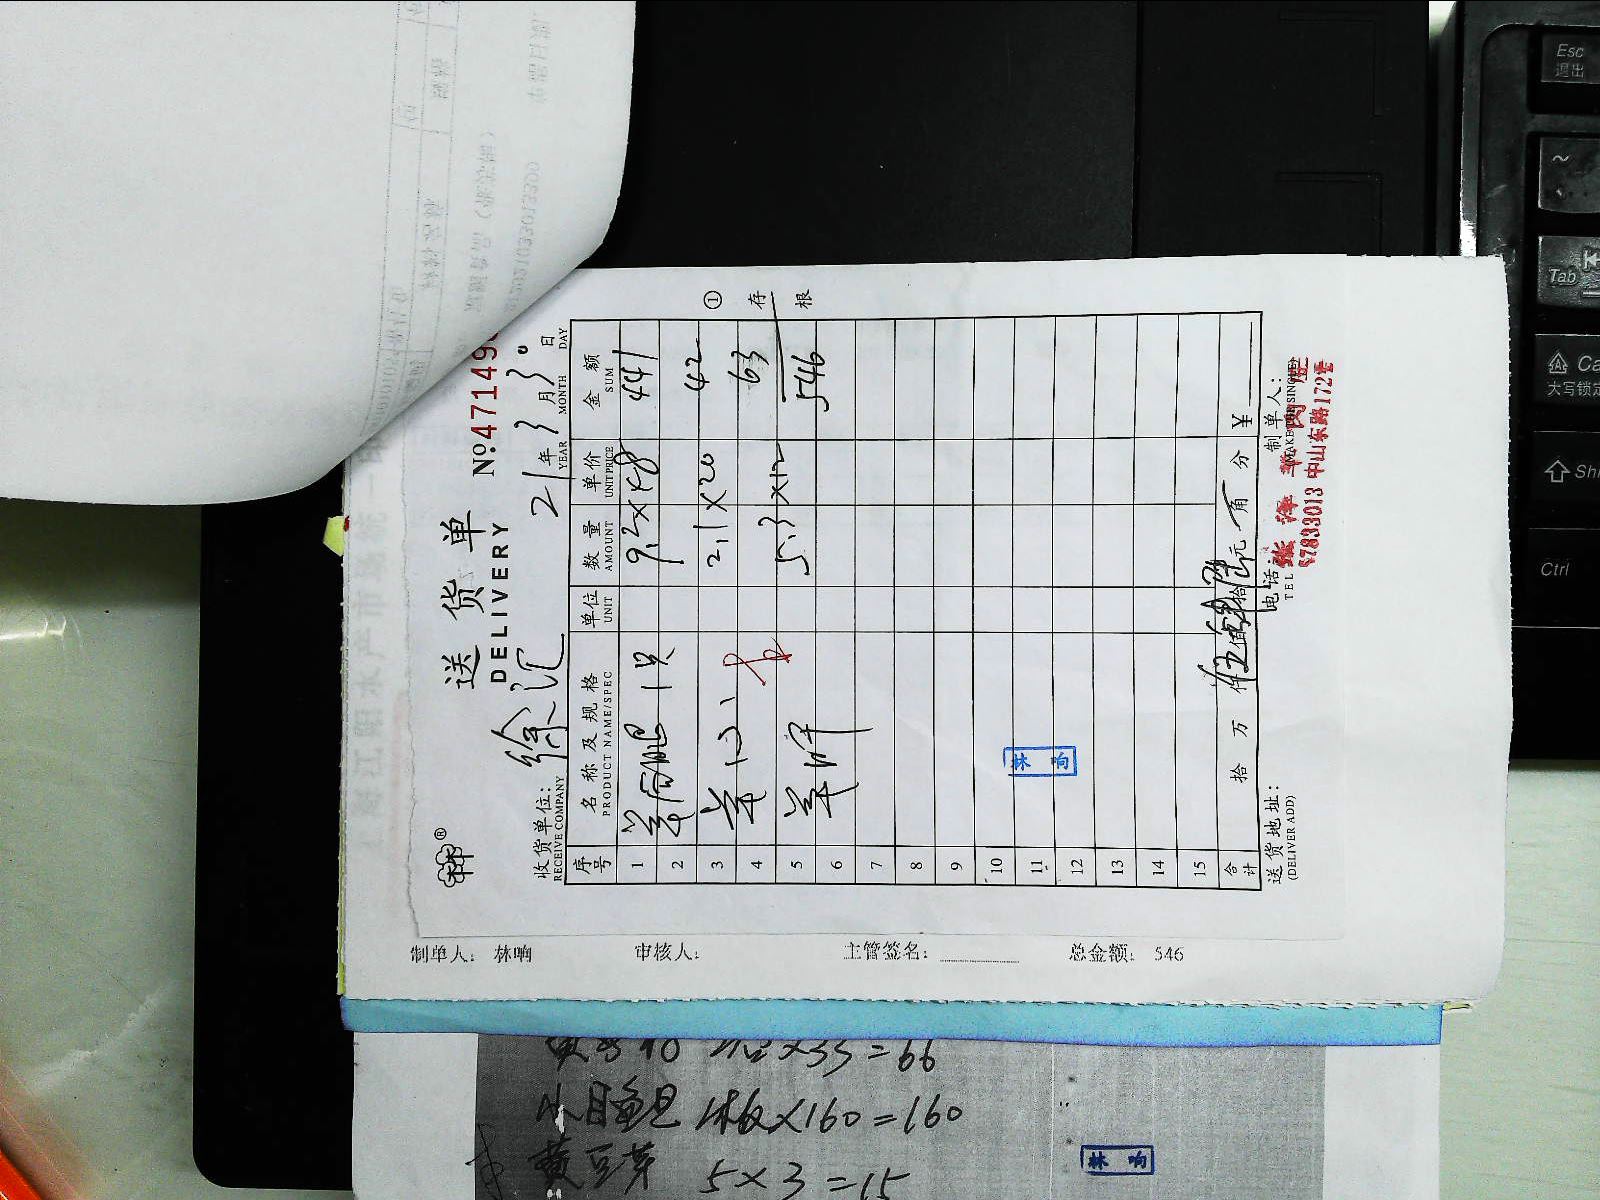 送货单
DELIVERY
№:47149
收货单位: 徐汇
RECEIVE COMPANY
21年3月30日
YEAR MONTH DAY
序号 名称及规格 单位 数量 单价 金额
PRODUCT NAME/SPEC UNIT AMOUNT UNIT PRICE SUM
1 羊后腿 1只 9.2×48 441
2
3 羊心 2.1×20 42
4 63
5 羊肝 5.3×12 546
6
7
8
9
10
11
12
13
14
15
林响
合计 拾 万 仟 伍佰肆拾陆元 角 分 ¥
送货地址: 电话: 制单人:
(DELIVER ADD) TEL
67833013 中山东路172号
① 存根
制单人: 林响 审核人: 主管签名: 总金额: 546
×33=66
×160=160
黄豆芽 5×3=15
林响
Esc
退出
~
Tab
Ca
大写锁定
Shi
Ctrl